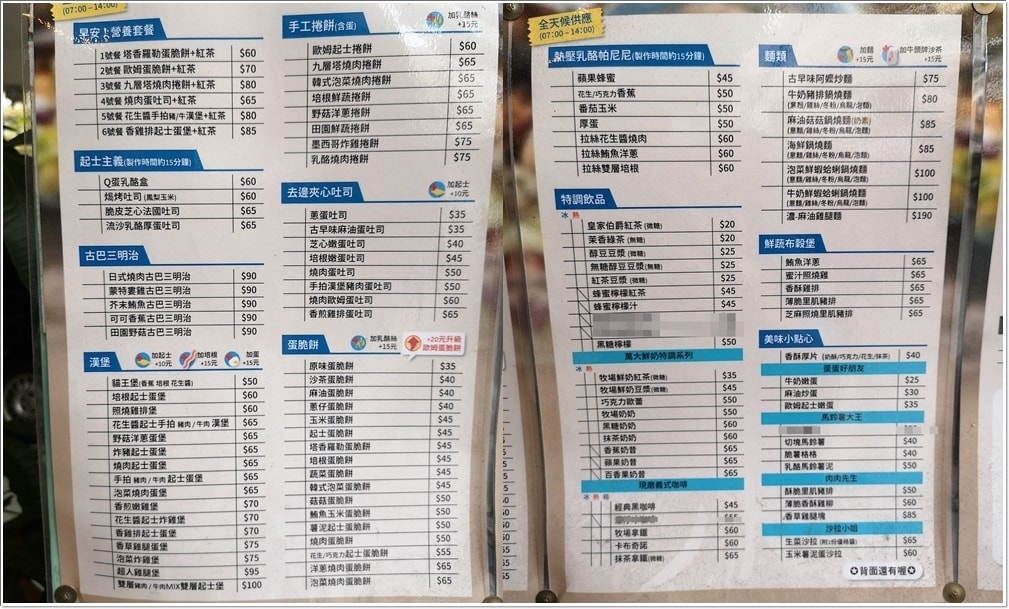 (07:00－14:00)
早安！營養套餐
1號餐 塔香羅勒蛋脆餅+紅茶 $60
2號餐 歐姆蛋脆餅+紅茶 $70
3號餐 九層塔燒肉捲餅+紅茶 $80
4號餐 燒肉蛋吐司+紅茶 $65
5號餐 花生醬手拍豬/牛漢堡+紅茶 $80
6號餐 香雞排起士蛋堡+紅茶 $85
起士主義(製作時間約15分鐘)
Q蛋乳酪盒 $60
焗烤吐司(鳳梨玉米) $60
脆皮芝心法國吐司 $65
流沙乳酪厚蛋吐司 $65
古巴三明治
日式燒肉古巴三明治 $90
蒙特婁雞古巴三明治 $90
芥末鮪魚古巴三明治 $90
可可香蕉古巴三明治 $90
田園野菇古巴三明治 $90
漢堡
加起士 +10元
加培根 +15元
加蛋 +15元
貓王堡(香蕉 培根 花生醬) $50
培根起士堡 $60
照燒雞排堡 $60
花生醬起士手拍 豬肉/牛肉 漢堡 $65
野菇洋蔥蛋堡 $65
炸豬起士蛋堡 $65
燒肉起士蛋堡 $65
手拍 豬肉/牛肉 起士蛋堡 $65
泡菜燒肉蛋堡 $65
香煎嫩雞堡 $70
花生醬起士炸雞堡 $70
香雞排起士蛋堡 $70
香草雞腿蛋堡 $75
泡菜炸雞堡 $75
超人雞腿堡 $95
雙層豬肉/牛肉MIX雙層起士堡 $100
手工捲餅(含蛋)
加乳酪絲 +15元
歐姆起士捲餅 $60
九層塔燒肉捲餅 $65
韓式泡菜燒肉捲餅 $65
培根鮮蔬捲餅 $65
野菇洋蔥捲餅 $65
田園鮮蔬捲餅 $65
墨西哥炸雞捲餅 $75
乳酪燒肉捲餅 $75
去邊夾心吐司
加起士 +10元
蔥蛋吐司 $35
古早味麻油蛋吐司 $35
芝心嫩蛋吐司 $40
培根嫩蛋吐司 $45
燒肉蛋吐司 $50
手拍漢堡豬肉蛋吐司 $50
燒肉歐姆蛋吐司 $60
香煎雞排蛋吐司 $65
蛋脆餅
加乳酪絲 +15元
+20元升級 歐姆蛋脆餅
原味蛋脆餅 $35
沙茶蛋脆餅 $40
麻油蛋脆餅 $40
蔥仔蛋脆餅 $40
玉米蛋脆餅 $45
起士蛋脆餅 $45
塔香羅勒蛋脆餅 $45
培根蛋脆餅 $45
蔬菜蛋脆餅 $45
韓式泡菜蛋脆餅 $45
菇菇蛋脆餅 $50
鮪魚玉米蛋脆餅 $50
薯泥起士蛋脆餅 $50
燒肉蛋脆餅 $50
花生/巧克力起士蛋脆餅 $55
洋蔥燒肉蛋脆餅 $65
泡菜燒肉蛋脆餅 $65
全天候供應
(07:00－14:00)
熱壓乳酪帕尼尼(製作時間約15分鐘)
蘋果蜂蜜 $45
花生/巧克力香蕉 $50
番茄玉米 $50
厚蛋 $50
拉絲花生醬燒肉 $60
拉絲鮪魚洋蔥 $60
拉絲雙層培根 $60
特調飲品
冰 熱
皇家伯爵紅茶(微糖) $20
茉香綠茶(無糖) $25
醇豆豆漿(微糖) $25
無糖醇豆豆漿(無糖) $25
紅茶豆漿(微糖) $25
蜂蜜檸檬紅茶 $45
蜂蜜檸檬汁 $45
黑糖檸檬 $50
萬大鮮奶特調系列
冰 熱
牧場鮮奶紅茶(微糖) $35
牧場鮮奶豆漿(微糖) $45
巧克力歐蕾 $50
牧場奶奶 $50
黑糖奶奶 $60
抹茶奶奶 $60
香蕉奶昔 $65
蘋果奶昔 $65
百香果奶昔 $65
現磨義式咖啡
冰 熱
經典黑咖啡 $45
牧場拿鐵 $60
卡布奇諾 $60
抹茶拿鐵(微糖) $65
麵類
加麵 +15元
加牛頭牌沙茶 +15元
古早味阿嬤炒麵 $75
牛奶豬排鍋燒麵 $80
(意麵/雞絲/冬粉/烏龍/泡麵)
麻油菇菇鍋燒麵(奶素) $85
(意麵/雞絲/冬粉/烏龍/泡麵)
海鮮鍋燒麵 $85
(意麵/雞絲/冬粉/烏龍/泡麵)
泡菜鮮蝦蛤蜊鍋燒麵 $100
(意麵/雞絲/冬粉/烏龍/泡麵)
牛奶鮮蝦蛤蜊鍋燒麵 $100
(意麵/雞絲/冬粉/烏龍/泡麵)
濃·麻油雞腿麵 $190
鮮蔬布穀堡
鮪魚洋蔥 $65
蜜汁照燒雞 $65
香酥雞排 $65
薄脆里肌豬排 $65
芝麻照燒里肌豬 $65
美味小點心
香酥厚片(奶酥/巧克力/花生/抹茶) $40
蛋蛋好朋友
牛奶嫩蛋 $25
麻油炒蛋 $30
歐姆起士嫩蛋 $35
馬鈴薯大王
切塊馬鈴薯 $40
脆薯格格 $40
乳酪馬鈴薯泥 $50
肉肉先生
酥脆里肌豬排 $50
薄脆香酥雞柳 $60
香草雞腿塊 $85
沙拉小姐
生菜沙拉(附1份優格醬) $65
玉米薯泥蛋沙拉 $60
✪背面還有喔✪